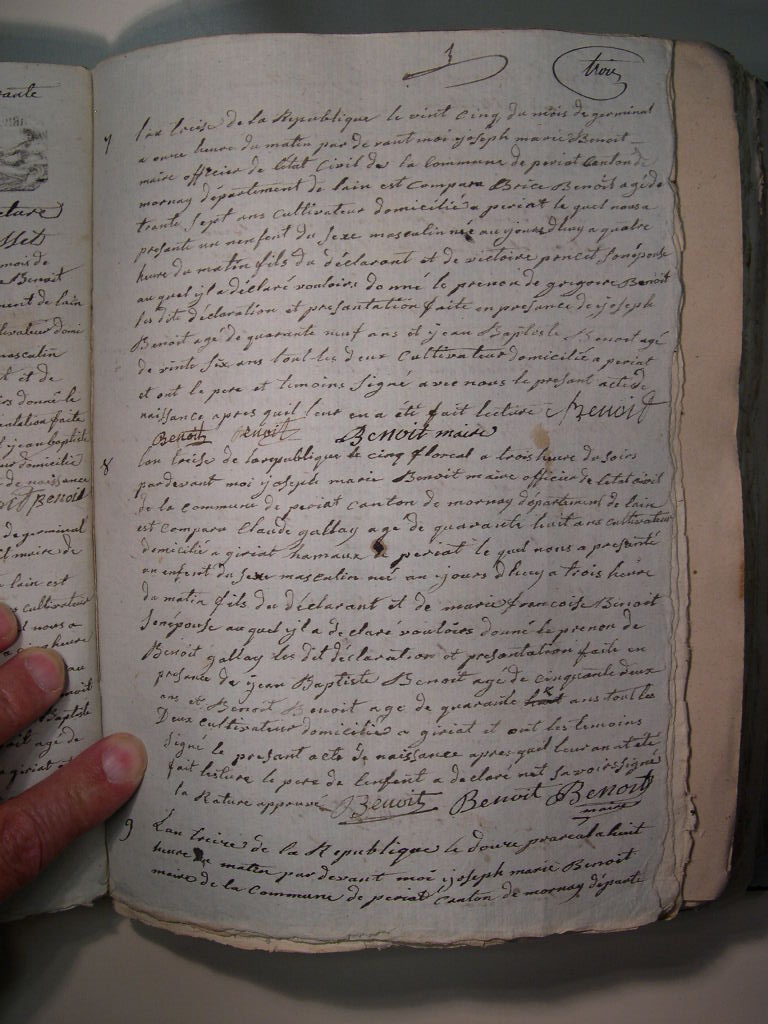 rante
cture
mois de
e Benoit
ment de lain
ltivateur domi
masculin
t et de
rs donné le
entation faite
t ijean baptiste
ur domicilie
de naissance
Benoit
de germinal
il maire de
lain est
cultivateur
nous a
cinq heure
au
Baptiste
oit agé de
a giriat et
3
trois
7
lan treise de la Republique le vint cinq du mois de germinal
a onze heure du matin par de vant moi ijoseph marie Benoit
maire officier de letat Civil de la Commune de periat Canton de
mornay département de lain est Compara Brice Benoit agé de
trante sept ans Cultivateur domicilié a periat le quel nous a
presanté un nenfent du Sexe masculin née au jours dhuy a quatre
heure du matin fils du déclarant et de victoire poncet Sonépouse
au quel yl a déclaré vouloirs donné le prenon de grégoire Benoit
les dite déclaration et presantation faite en presance de ijoseph
Benoit agé de quarante neuf ans et ijean Baptiste Benoit agé
de vinte six ans tout les deux Cultivateur domicilié a periat
et ont le pere et temoins Signé avec nous le presant acte de
naissance apres quil leur en a été fait lecture Benoit
Benoit Benoit Benoit maire
8
lan treise de la republique le cinq floreal a trois heure du soirs
par devant moi ijoseph marie Benoit maire officier de letat civil
de la commune de periat Canton de mornay département de lain
est Compara Claude gallay age de quarante huit ans cultivateur
domicilié a giriat hamaux de periat le quel nous a presanté
un enfent du Sexe masculin neé au jours dhuy a trois heure
du matin fils du déclarant et de marie francoise Benoit
Sonépouse au quel yl a declaré vouloirs donné le prenon de
Benoit gallay les dit déclaration et presantation faite en
presance de ijean Baptiste Benoit agé de cinquante deux
ans et Benoit Benoit age de quarante huit ans tout les
Deux Cultivateur domicilié a giriat et ont les temoins
Signé le presant acte de naissance apres quil leur an at eté
fait lecture le pere de lenfent a declaré net Savoirs Signé
la Rature approuvé Benoit Benoit Benoit
maire
9
Lan treize de la Republique le douze prareal a huit
heure du matin par devant moi ijoseph marie Benoit
maire de la Commune de periat Canton de mornay départe